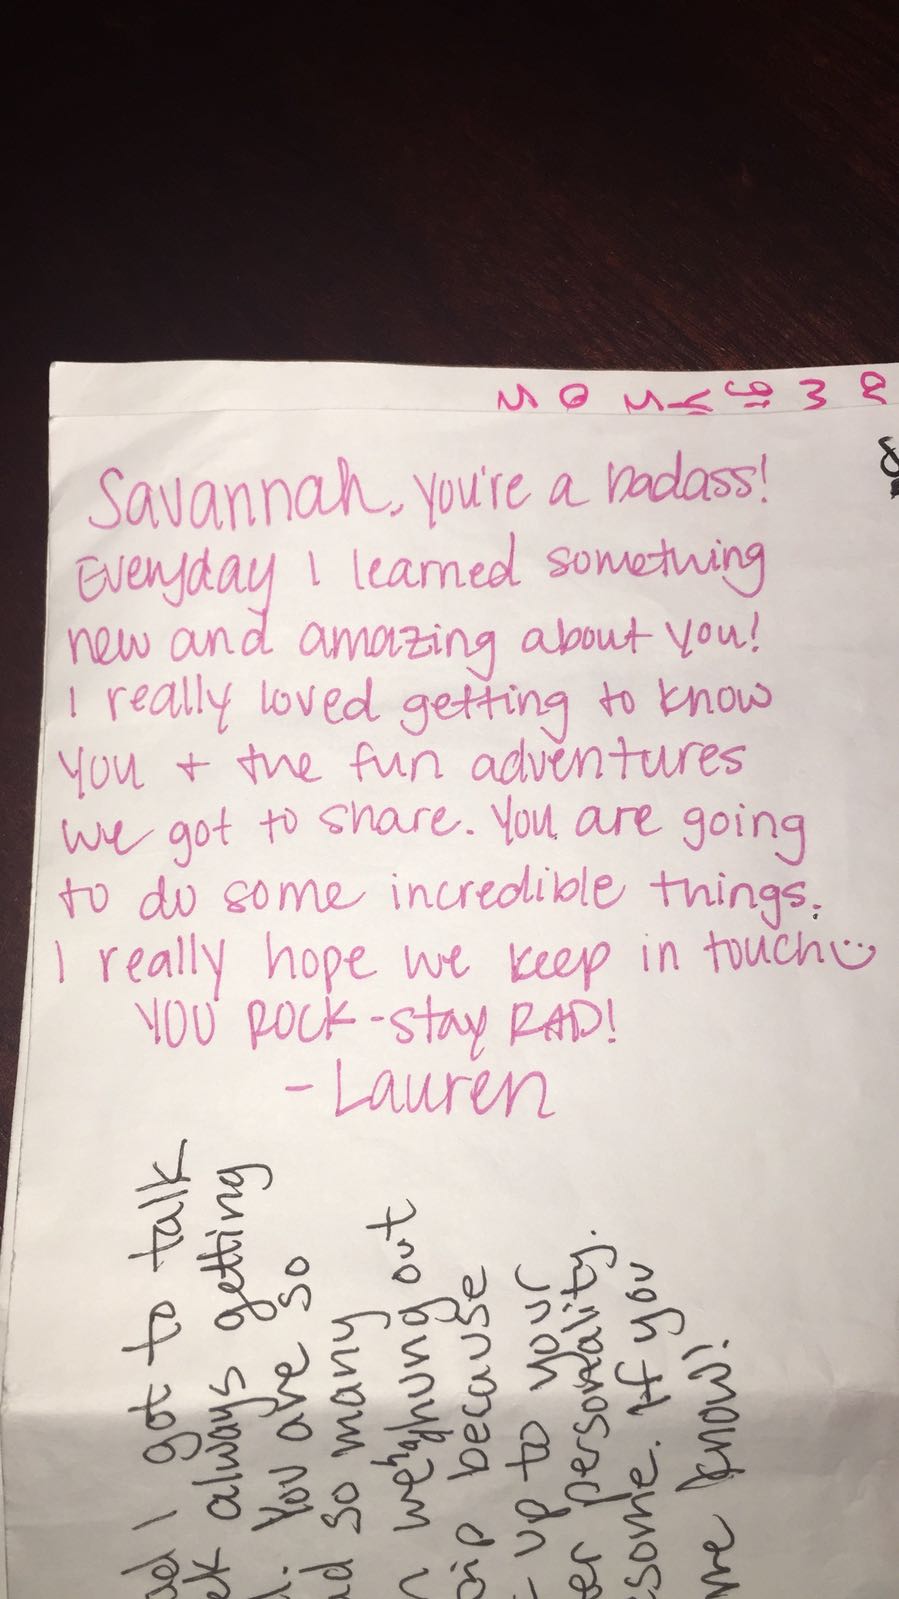 Savannah, you're a badass!
Everyday I learned something
new and amazing about you!
I really loved getting to know
you + the fun adventures
we got to share. You are going
to do some incredible things.
I really hope we keep in touch
YOU ROCK - stay RAD!
- Lauren
I got to talk
always getting
You are so
so many
we had hung out
because
up to your
personality.
If you
know!